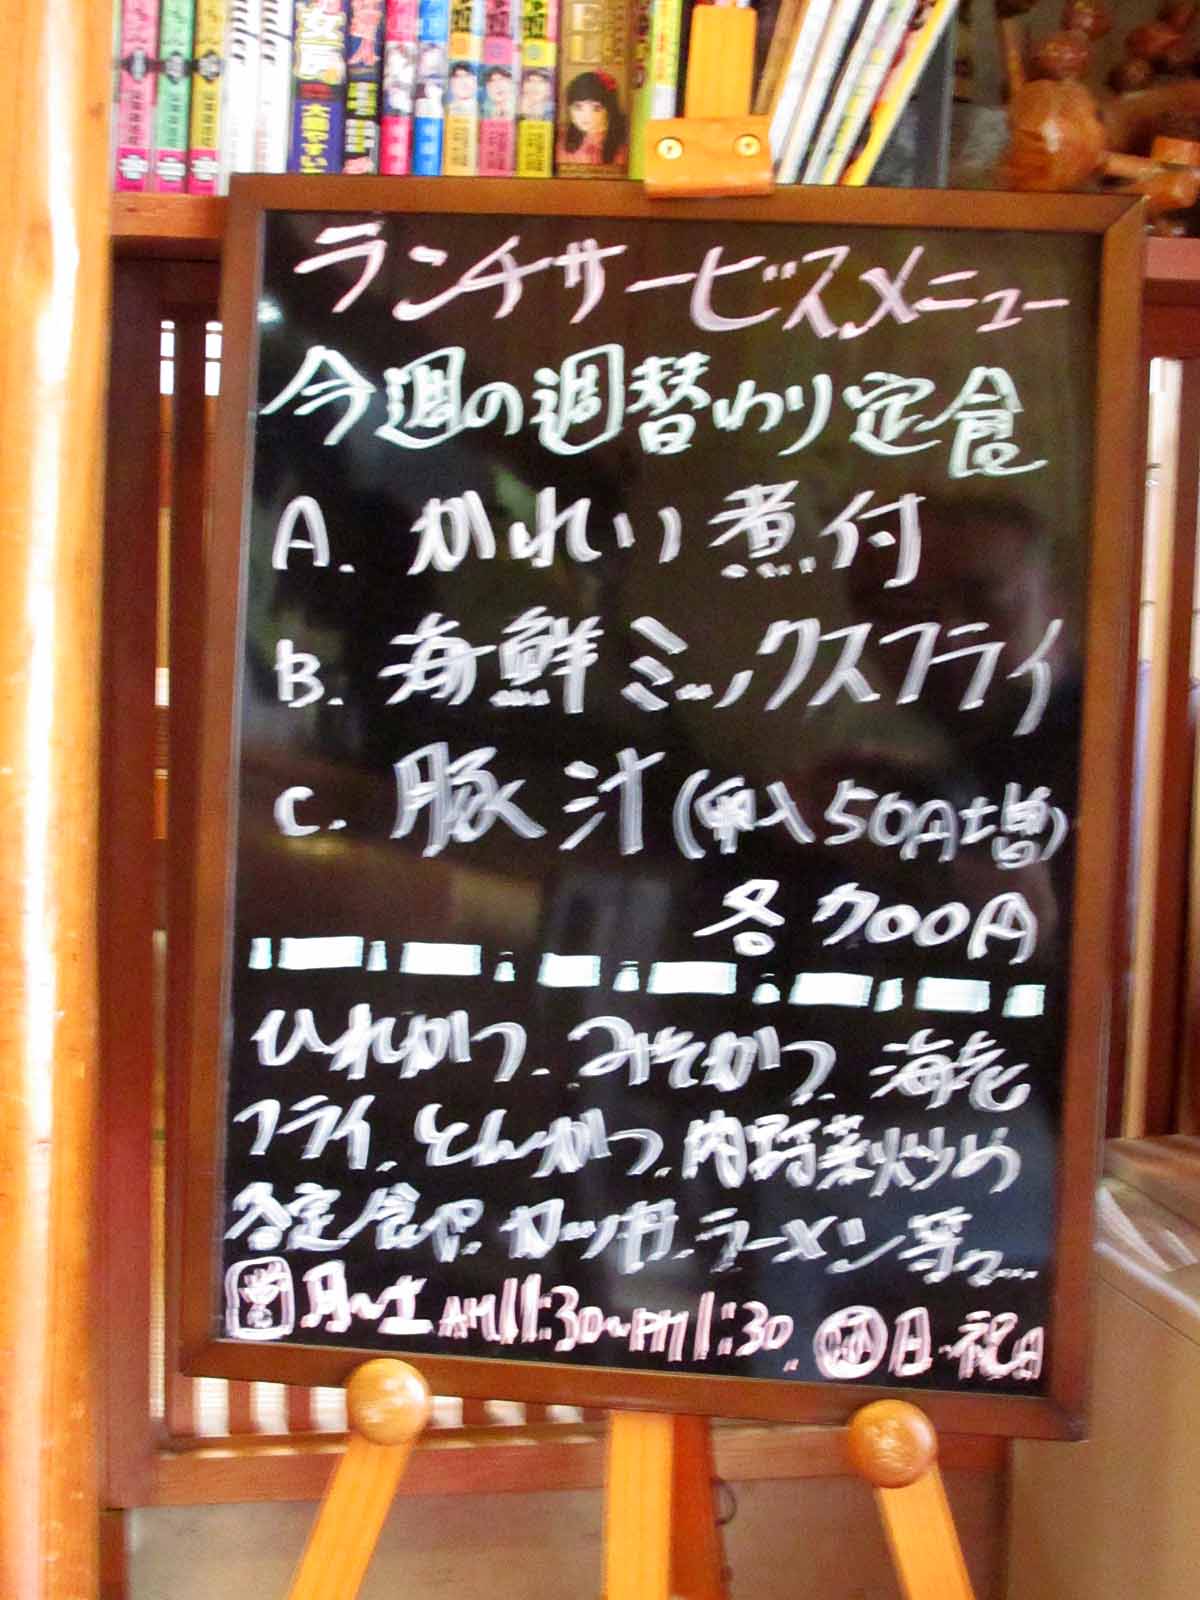 ランチサービスメニュー
今週の週替わり定食
A. かれい煮付
B. 海鮮ミックスフライ
C. 豚汁(卵入50円増)
各700円
ひれかつ、みそかつ、海老
フライ、とんかつ、肉野菜炒め
各定食や、カツ丼、ラーメン等々…
営 月〜土 AM11:30〜PM1:30、休 日・祝日